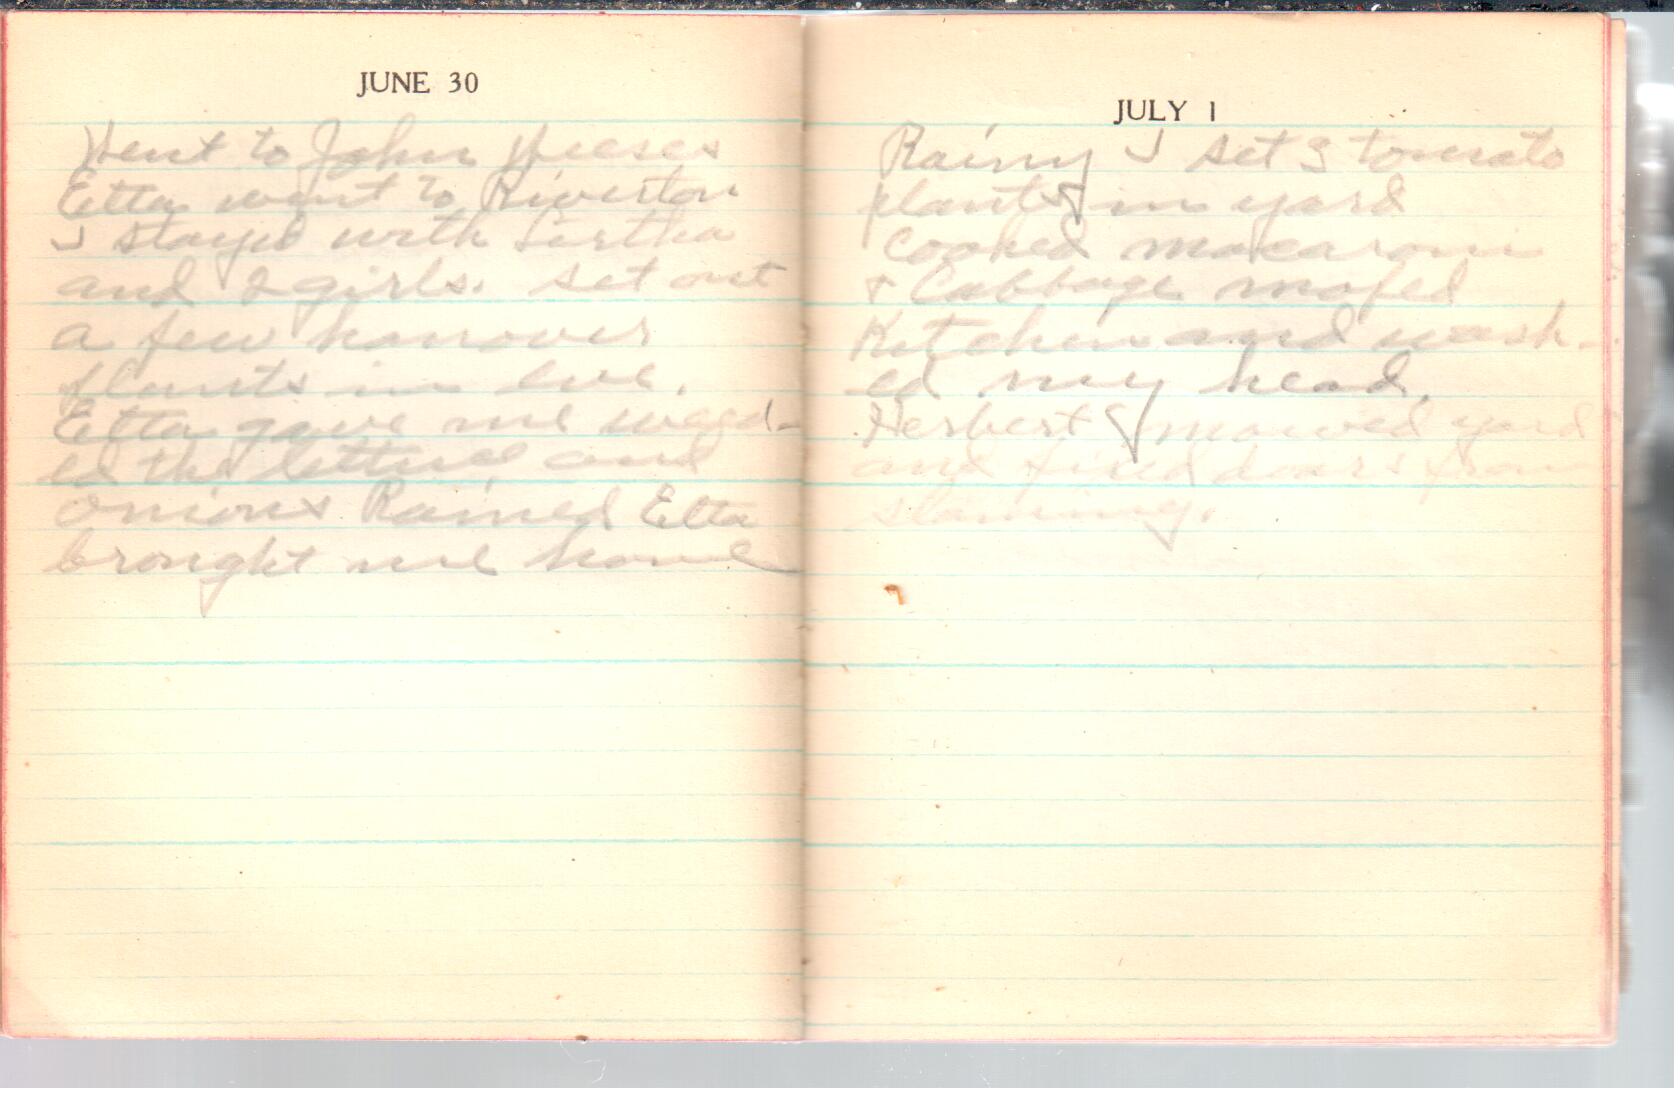 JUNE 30
Went to John
Etta went to Riverton
I stayed with
and 2 girls. set out
a few
plants in eve.
Etta gave me weed-
ed the lettuce and
onions Rained Etta
brought me home
JULY 1
Rainy I set 3 tomato
plants in yard
Cooked macaroni
+ Cabbage moped
Kitchen and wash-
ed my head.
Herbert mowed yard
and fixed doors from
slaming.